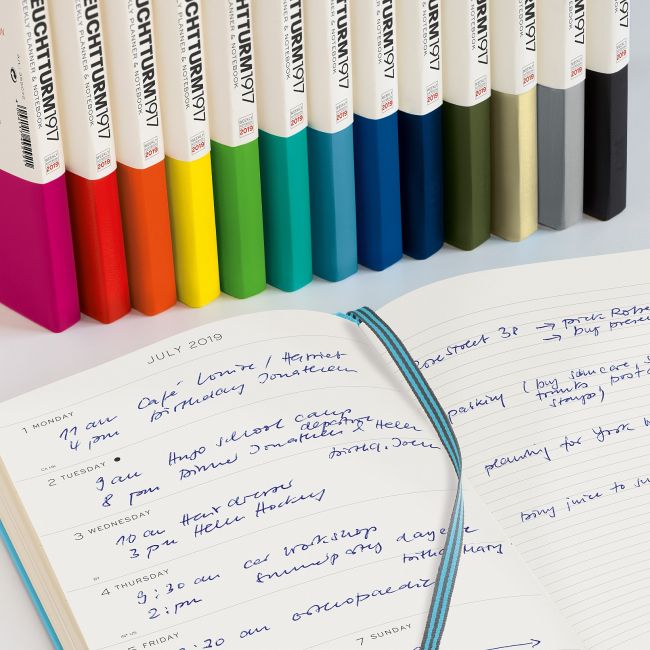 LEUCHTTURM1917
WEEKLY PLANNER & NOTEBOOK
2019
EUCHTTURM1917
WEEKLY PLANNER & NOTEBOOK
2019
LEUCHTTURM1917
WEEKLY PLANNER & NOTEBOOK
2019
LEUCHTTURM1917
2019
LEUCHTTURM1917
2019
LEUCHTTURM1917
2019
LEUCHTTURM1917
2019
LEUCHTTURM1917
2019
LEUCHTTURM1917
2019
LEUCHTTURM1917
2019
LEUCHTTURM1917
2019
LEUCHTTURM1917
2019
JULY 2019
1 MONDAY
11 am Café Louise / Harriet
4 pm Birthday Jonathan
2 TUESDAY
9 am Hugo school camp
departure
8 pm Dinner Jonathan & Helen
birthd.
3 WEDNESDAY
10 am Hairdresser
3 pm Helen Hockey
4 THURSDAY
9:30 am car workshop
2: pm Summerparty daycare
birthd. Mary
5 FRIDAY
:30 am orthopaedic
7 SUNDAY
street 38 → pick
→ buy
packing (buy suncare,
trunks,
stamps)
planning for York
bring juice to